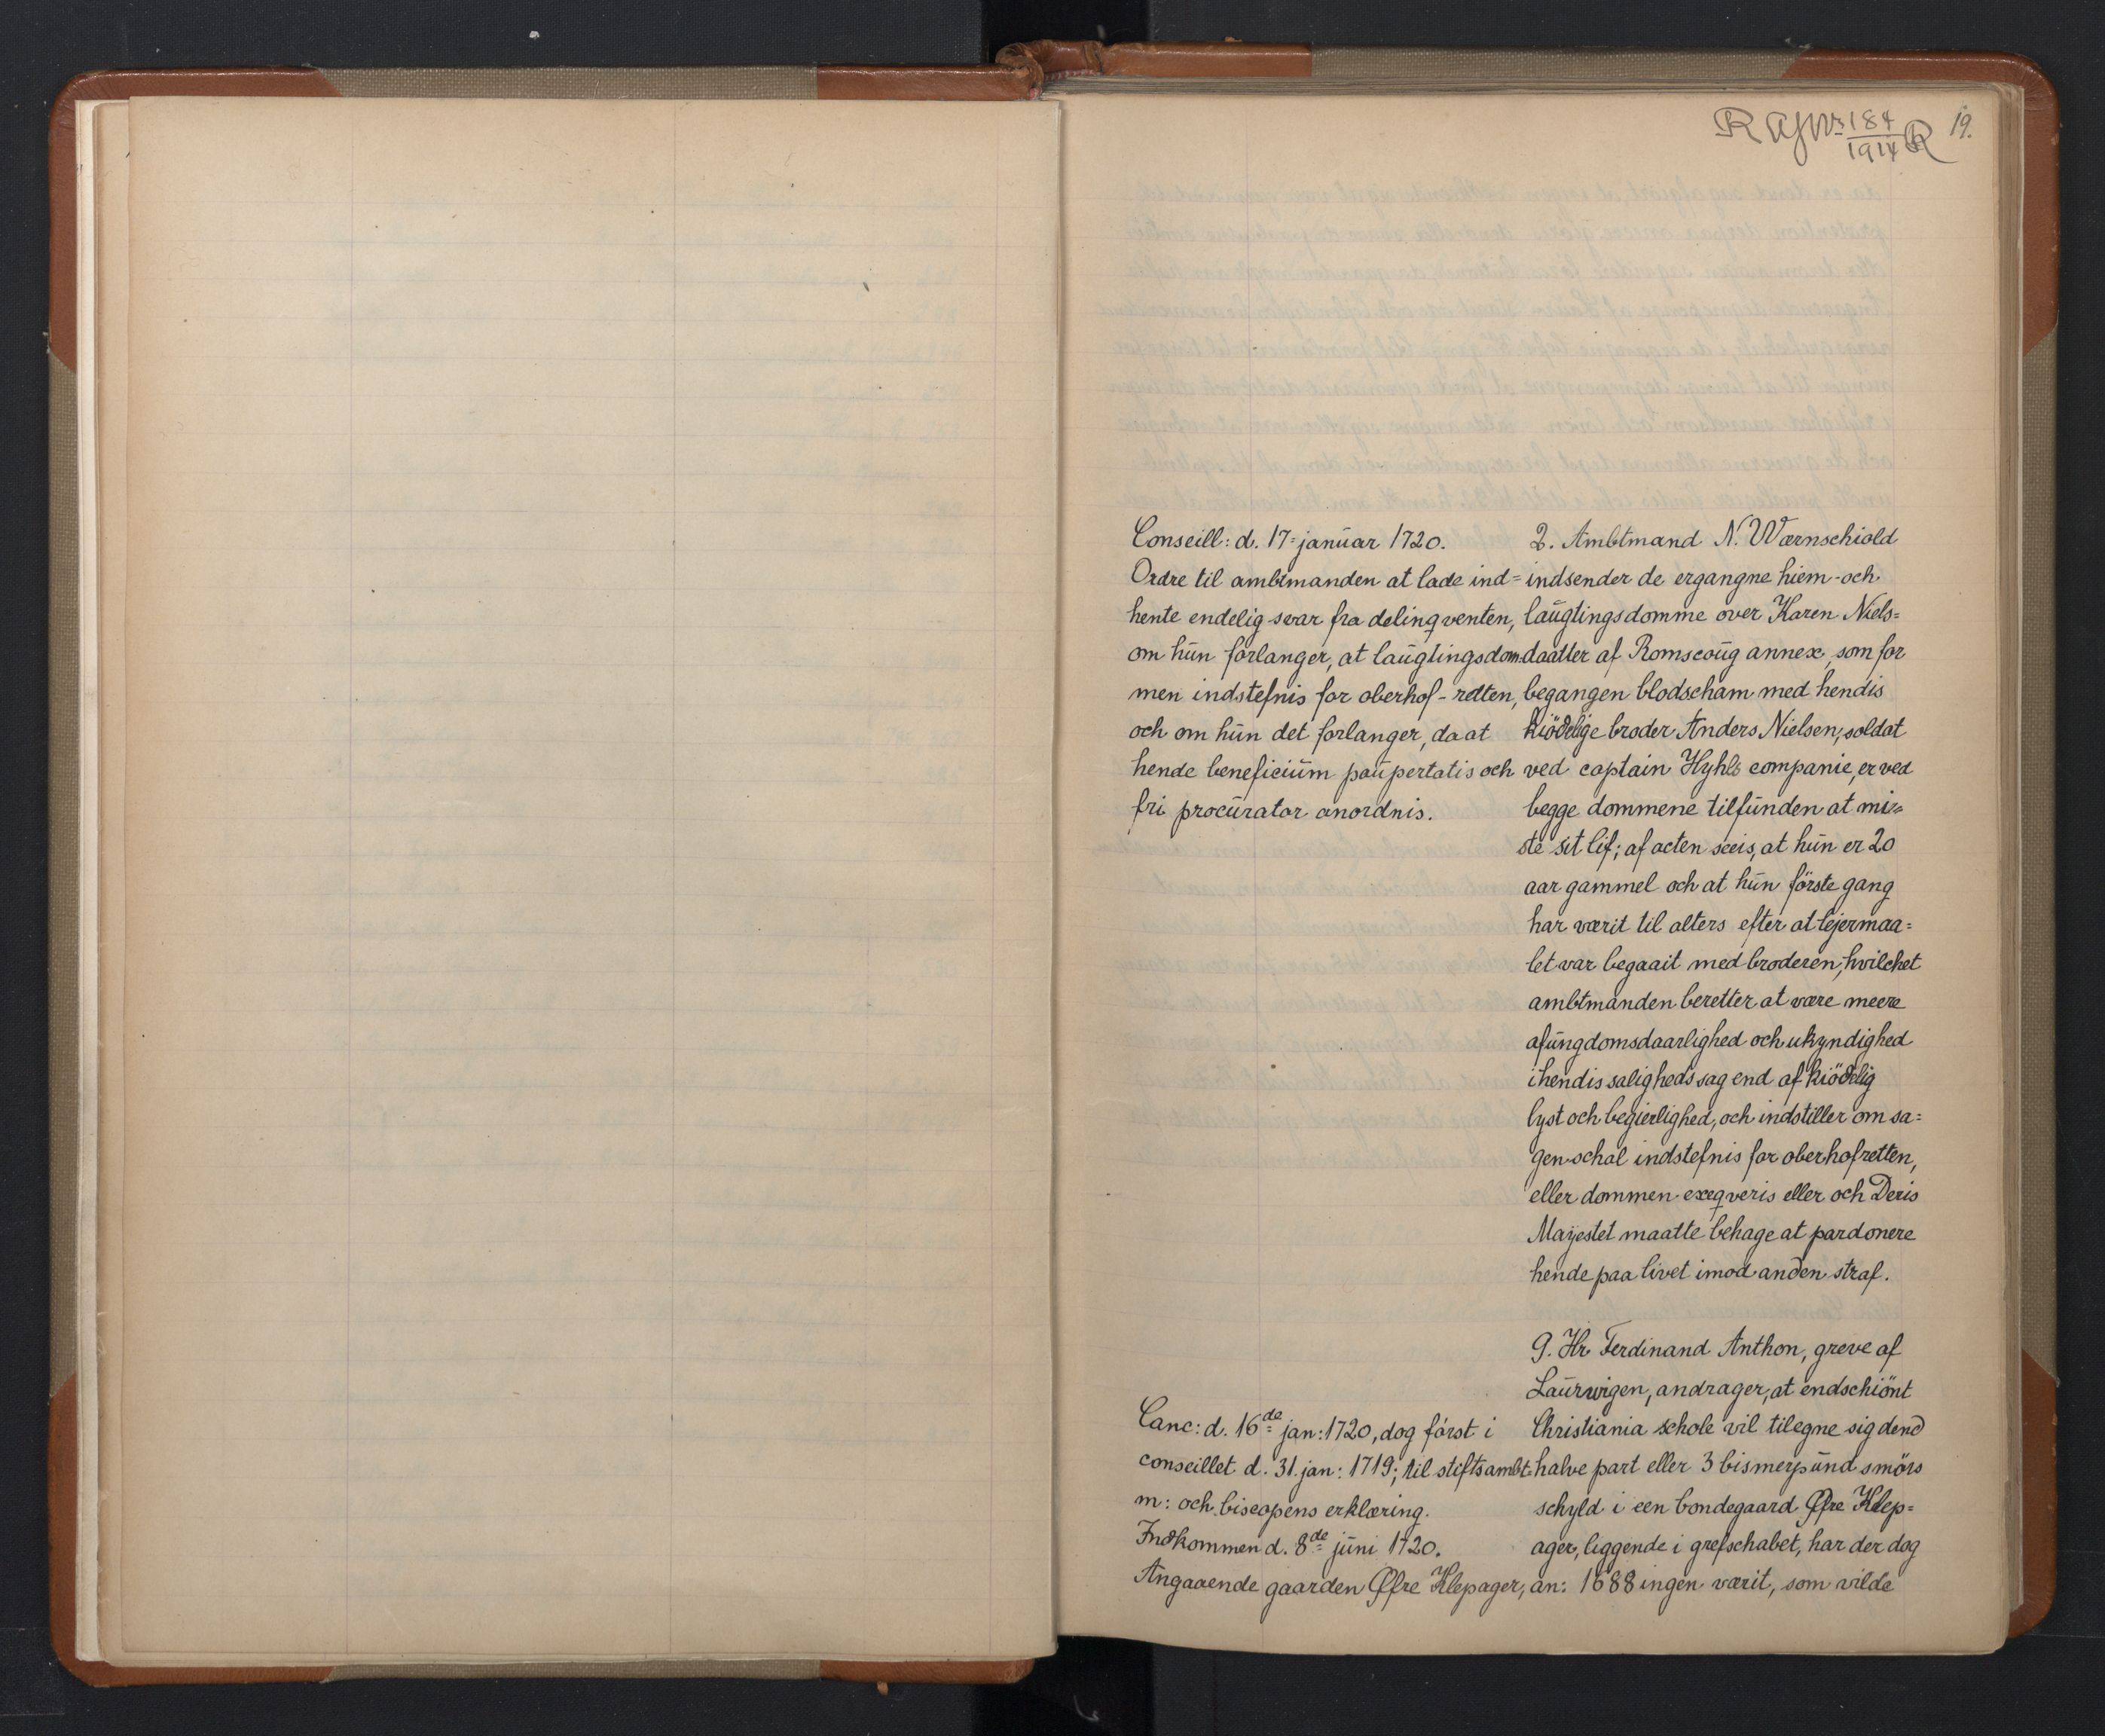 19.
184
1914
Conseill: d. 17 januar 1720.
Ordre til ambtmanden at lade ind=
hente endelig svar fra delinqventen,
om hun forlanger, at laugtingsdom
men indstefnis for oberhof-retten,
och om hun det forlanger, da at
hende beneficium paupertatis och
fri procurator anordnis.
2. Ambtmand N. Wærnschiold
indsender de ergangne hiem- och
laugtingsdomme over Karen Niels=
daatter af Romscoug annex, som for
begangen blodscham med hendis
kiödelige broder Anders Nielsen, soldat
ved captain Hyhls companie, er ved
begge dommene tilfunden at mi=
ste sit lif; af acten seeis, at hun er 20
aar gammel och at hun förste gang
har værit til alters efter at lejermaa=
let var begaait med broderen, hvilchet
ambtmanden beretter at være meere
af ungdomsdaarlighed och ukyndighed
i hendis saligheds sag end af kiödelig
lyst och begierlighed, och indstiller om sa=
gen schal indstefnis for oberhofretten,
eller dommen exeqveris eller och Deris
Mayestet maatte behage at pardonere
hende paa livet imod anden straf.
Canc: d. 16de jan: 1720, dog först i
conseillet d. 31. jan: 1719; til stiftsambt
m: och biscopens erklæring.
Indkommen d. 8de juni 1720.
Angaaende gaarden Øfre Klepager,
9. Hr Ferdinand Anthon, greve af
Laurwigen, andrager, at endschiönt
Christiania schole vil tilegne sig dend
halve part eller 3 bismerpund smörs
schyld i een bondegaard Øfre Klep=
ager, liggende i grefschabet, har der dog
an: 1688 ingen værit, som vilde